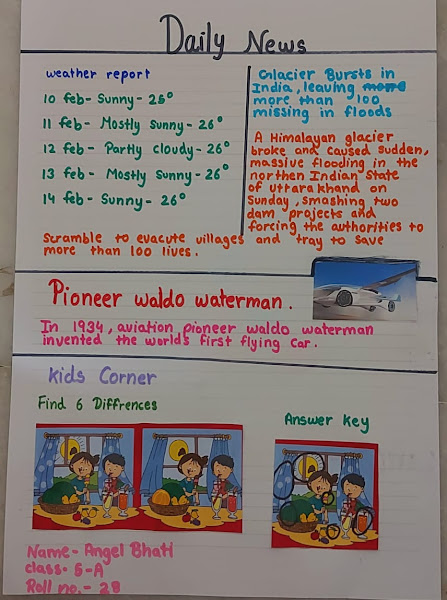 Daily News
weather report
10 feb- Sunny- 26°
11 feb- Mostly Sunny- 26°
12 feb- Partly cloudy- 26°
13 feb- Mostly Sunny- 26°
14 feb- Sunny- 26°
Glacier Bursts in
India, leaving
more than 100
missing in floods
A Himalayan glacier
broke and caused sudden,
massive flooding in the
northen Indian State
of uttarakhand on
Sunday, smashing two
dam projects and
forcing the authorities to
Scramble to evacute villages and tray to save
more than 100 lives.
Pioneer waldo waterman.
In 1934, aviation pioneer waldo waterman
invented the world's first flying car.
Kids Corner
Find 6 Diffrences
Answer key
Name- Angel Bhati
class- 5-A
Roll no.- 28